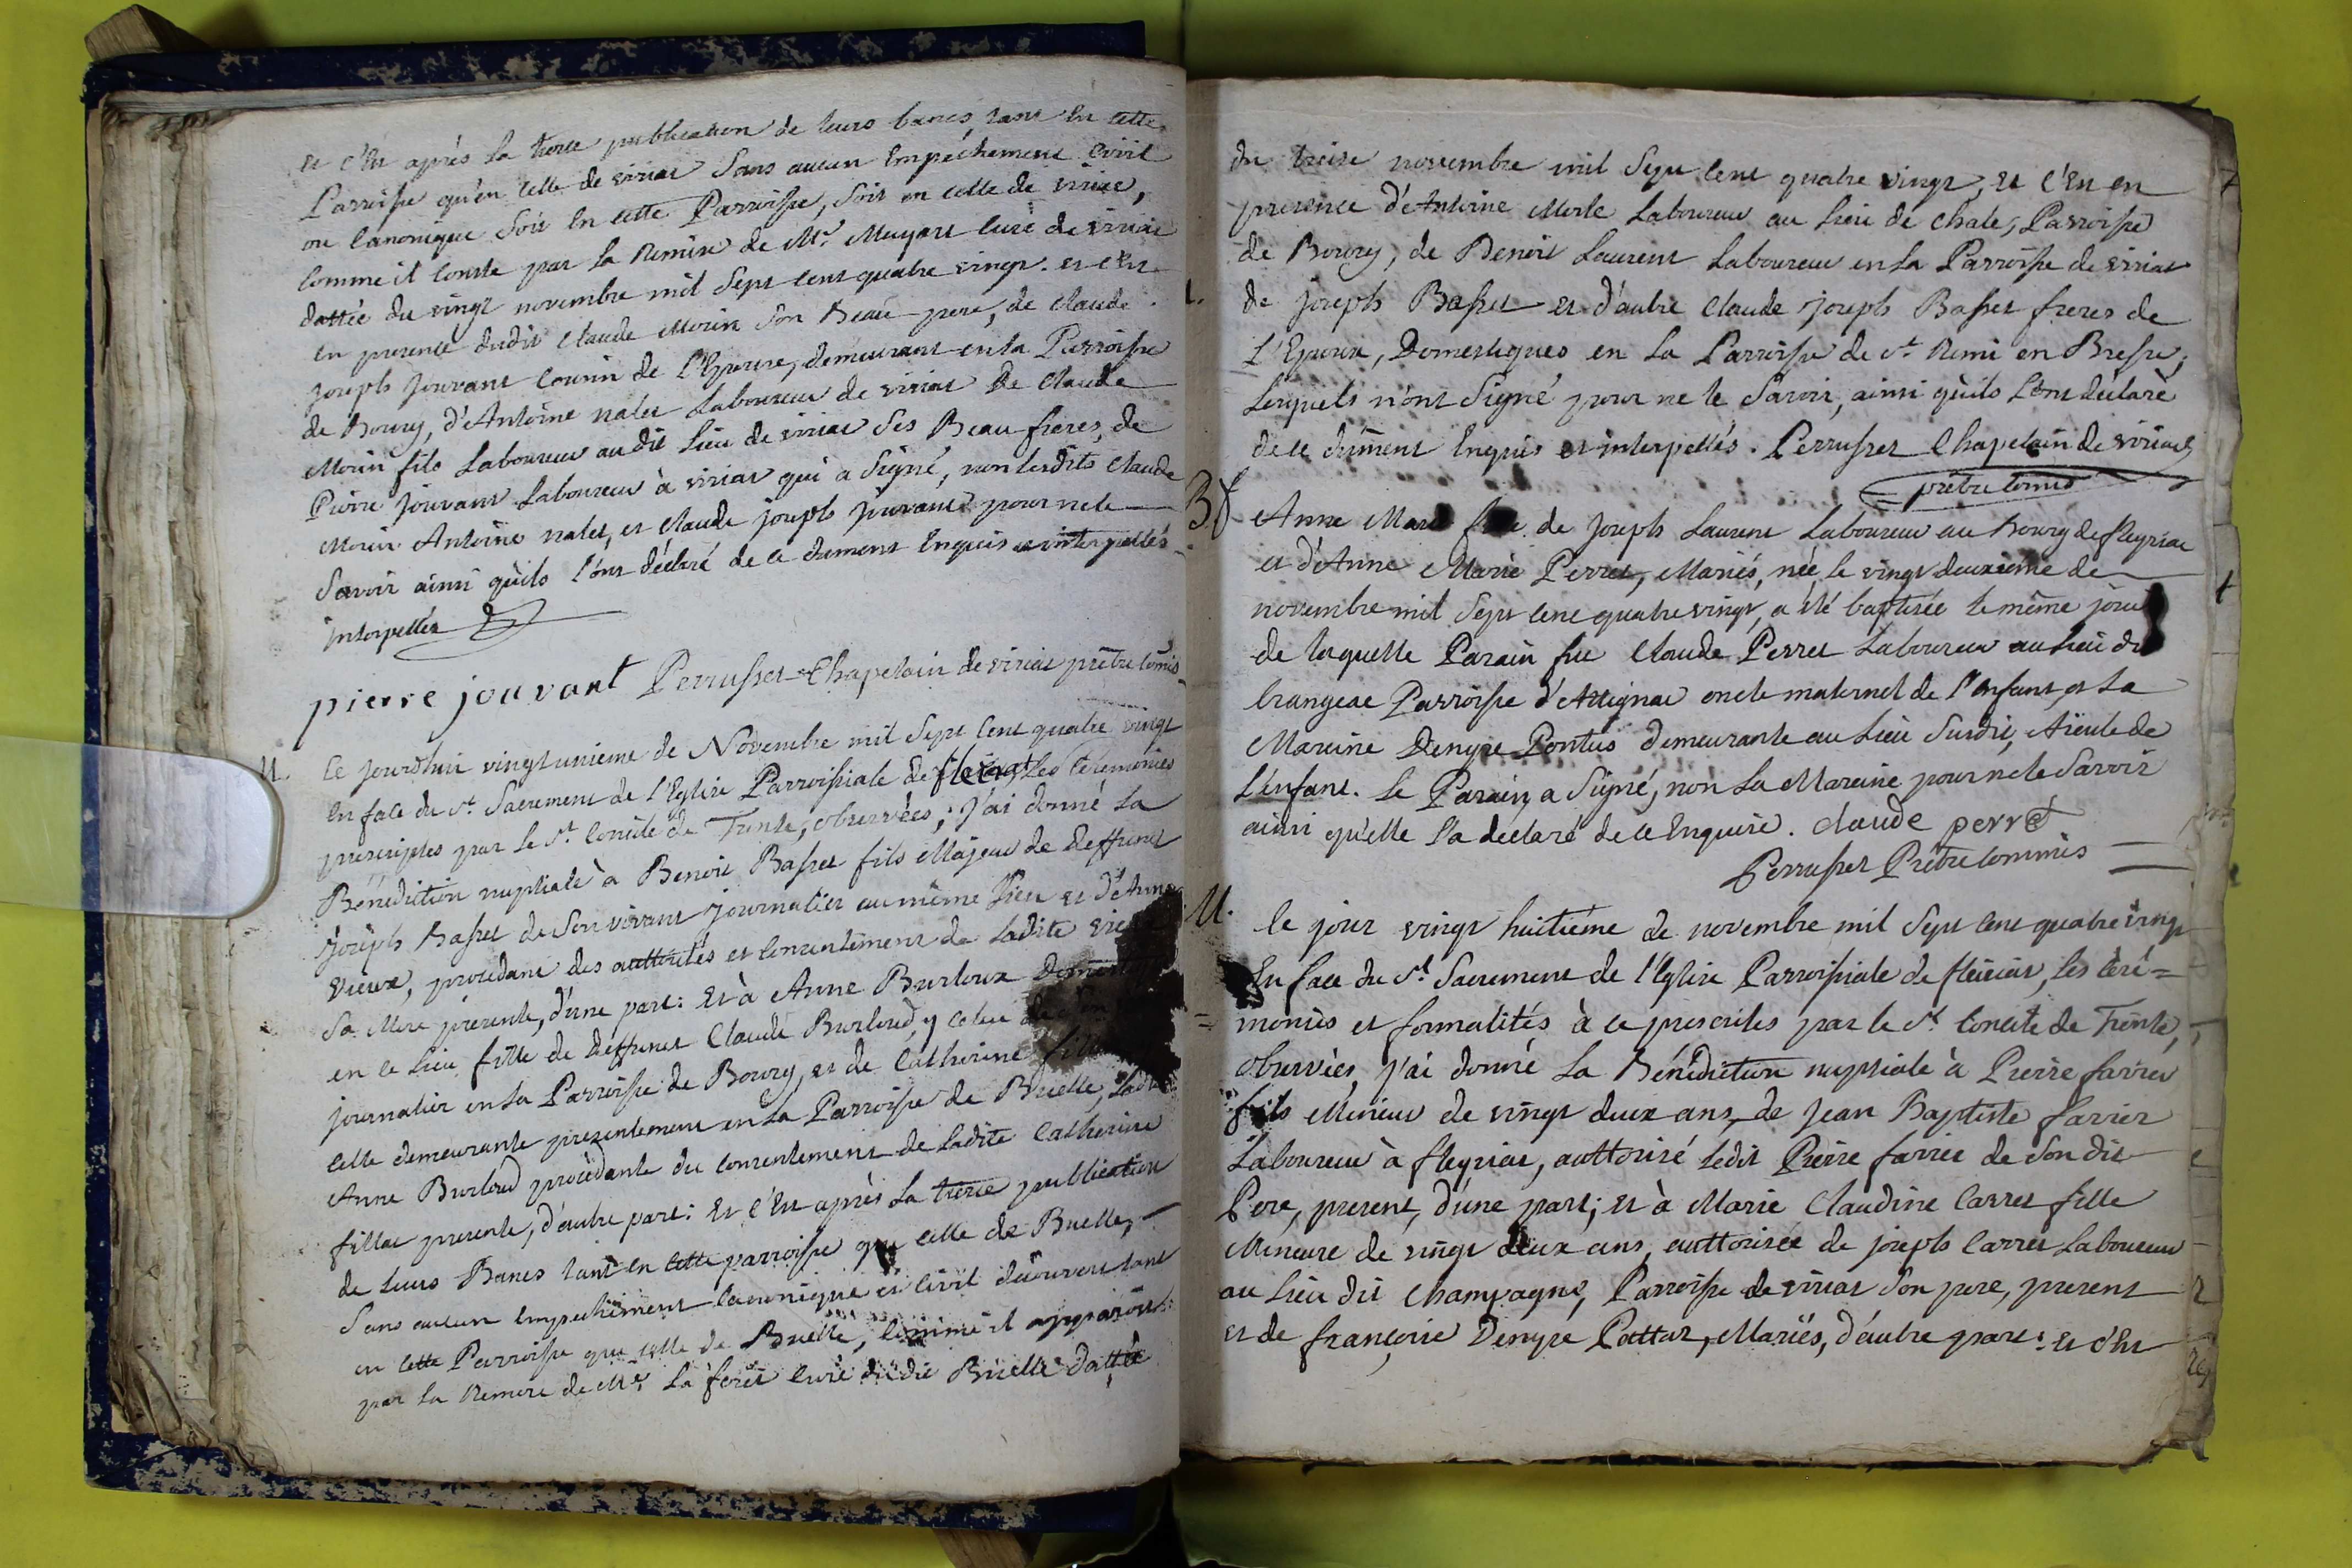 et c'est après la tierce publication de leurs bancs, tant en cette
Parroisse qu'en celle de viriat sans aucun Empéchement civil
ou Canonique soit en cette Parroisse, soit en celle de viriat,
comme il conste par la Remise de Mr. Muyart curé de viriat
dattée du vingt novembre mil sept cent quatre vingt. et c'est
en presence dudit claude Morin son Beau-pere, de claude
joseph jouvant cousin de l'Epouse, demeurant en la Parroisse
de Bourg, d'Antoine nalet Laboureur de viriat De claude
Morin fils Laboureur audit Lieu de viriat ses Beau-freres, de
Pierre jouvant Laboureur à viriat qui a signé, non lesdits claude
Morin Antoine nalet, et claude joseph jouvant pour ne le
savoir ainsi qu'ils l'ont déclaré de ce dument Enquis et interpellés
interpellés
pierre jouvant Perrusset Chapelain de viriat prêtre comis
M. Ce jourd'hui vingtunieme de Novembre mil sept cent quatre vingt
en face du st. Sacrement de l'Eglise Parroissiale de fleiriat, les ceremonies
prescriptes par le st. Concile de Trente, observées; j'ai donné la
Bénédiction nuptiale à Benoit Basset fils Majeur de deffunct
joseph Basset de son vivant journalier au même Lieu et d'Anne
vieux, procedant des authorités et consentement de ladite vieux
sa Mere présente, d'une part: et à Anne Burloux
en ce Lieu fille de deffunct Claude Burloud,
journalier en la Parroisse de Bourg, et de Catherine
celle demeurante presentement en la Parroisse de Buelle, ladite
Anne Burloud procedante du consentement de ladite Catherine
fillat presente, d'autre part: et c'est après la tierce publication
de leurs Bancs tant en cette parroisse que celle de Buelle,
sans aucun Empechement canonique et civil découvert tant
en cette Parroisse que celle de Buelle, comme il apparoit
par la Remise de Mr. La forêt curé dudit Buelle dattée
du treise novembre mil sept cent quatre vingt, et c'est en
presence d'Antoine Morle Laboureur au Lieu de chale, Parroisse
de Bourg, de Benoit Laurent Laboureur en la Parroisse de viriat
de joseph Basset et d'autre claude joseph Basset freres de
l'Epoux, Domestiques en la Parroisse de st. Remi en Bresse,
lesquels n'ont signé pour ne le savoir, ainsi qu'ils l'ont déclaré
de ce dûment Enquis et interpellés. Perrusset Chapelain de viriat
prêtre comis
B. Anne Marie de joseph Laurent Laboureur au Bourg de fleyriat
et d'Anne Marie Perret, Mariés, née le vingt deuxième de
novembre mil sept cent quatre vingt, a été baptisée le même jour
de laquelle Parain fut Claude Perret Laboureur au lieu de
Crangeac Parroisse d'Attignat oncle maternel de l'enfant, et la
Maraine Denyse Pontus demeurante au Lieu susdit, Aïeule de
l'enfant. le Parain a signé, non la Maraine pour ne le savoir
ainsi qu'elle l'a declaré de ce Enquise. claude perret
Perrusset Prêtre commis
M. le jour vingt huitiéme de novembre mil sept cent quatre vingt
En face du st. Sacrement de l'Eglise Parroissiale de fleiriat, les céré=
=monies et formalités à ce prescrites par le st. Concile de Trente,
observées, j'ai donné la Bénédiction nuptiale à Pierre farrier
fils Mineur de vingt deux ans, de jean Baptiste farrier
Laboureur à fleyriat, authorisé ledit Pierre farrier de son dit
Pere, present, d'une part; et à Marie Claudine Carret fille
Mineure de vingt deux ans, authorisée de joseph Carret Laboureur
au Lieu dit Champagne, Parroisse de viriat son pere, present
et de françoise Denyse Pattar, Mariés, d'autre part: et c'est